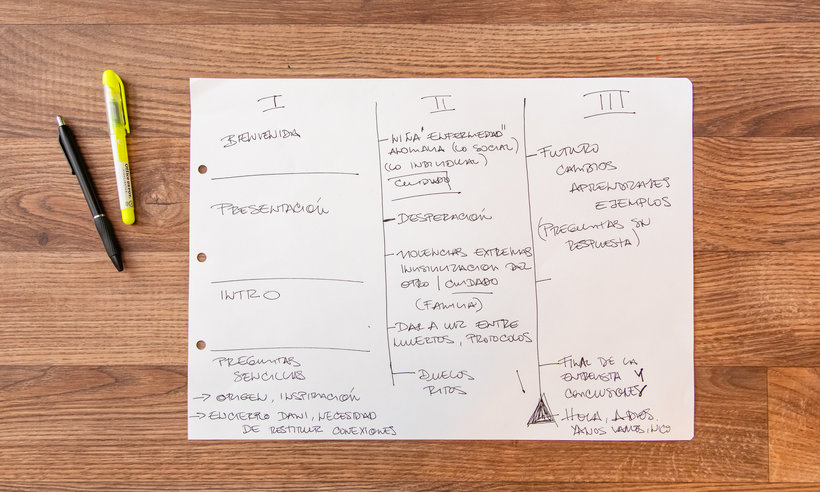 I
BIENVENIDA
PRESENTACIÓN
INTRO
PREGUNTAS
SENCILLAS
→ ORIGEN, INSPIRACIÓN
→ ENCIERRO DANI, NECESIDAD
DE RESTITUIR CONEXIONES
II
NIÑA "ENFERMEDAD"
ANOMALIA (LO SOCIAL)
(LO INDIVIDUAL)
CUIDADO
DESPERACIÓN
VIOLENCIAS EXTREMAS
INVISIBILIZACION DEL
OTRO / CUIDADO
(FAMILIA)
DAR A LUZ ENTRE
MUERTOS, PROTOCOLOS
DUELOS
RITOS
III
FUTURO
CAMBIOS
APRENDIZAJES
EJEMPLOS
(PREGUNTAS SIN
RESPUESTA)
FINAL DE LA
ENTREVISTA Y
CONCLUSIONES
HOLA, ADIOS.
YA NOS VAMOS,